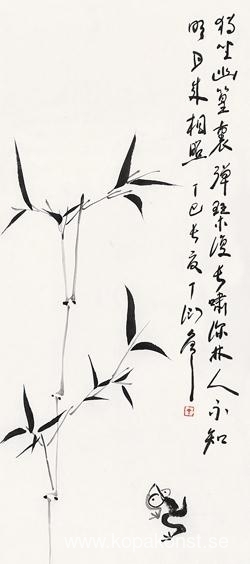 獨坐幽篁裏彈琹復長嘯深林人不知
明月來相照丁巳長夏丁衍庸
www.kopakonst.se